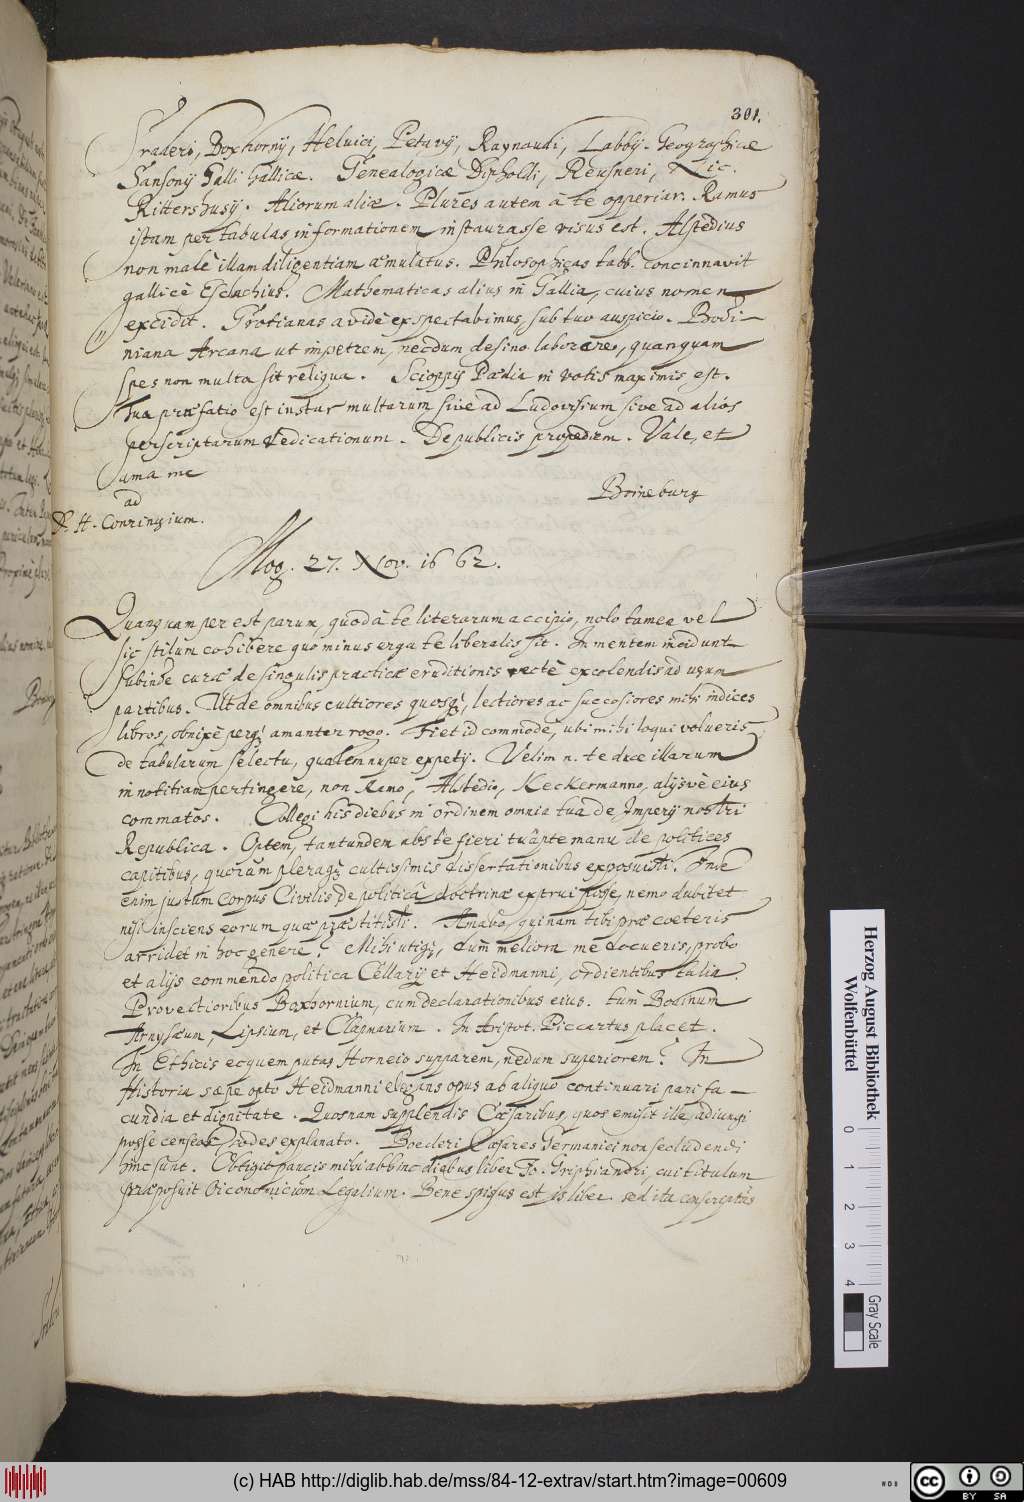 301.
Straderi, Boxhornij, Heluici, Petavij, Raynaudi, Labbij. Geographicæ
Sansonij Galli Gallicæ. Genealogicæ Dipholdi, Reusneri,
Rittershusij. Aliorum aliæ. Plures autem à te opperiar. Ramus
istam per tabulas informationem instaurasse visus est. Alstedius
non malè illam diligentiam æmulatus. Philosophicas tabb. concinnavit
gallicè Esclachius. Mathematicas alius in Gallia, cuius nomen
excidit. Grotianas avidè exspectabimus, sub tuo auspicio. Bodi-
niana Arcana ut impetrem, necdum desino laborare, quanquam
spes non multa sit reliqua. Scioppij Pædia in votis maximis est.
Tua præfatio est instar multarum sive ad Ludovisium sive ad alios
perscriptarum dedicationum. De publicis propediem. Vale, et
ama me
Boineburg
ad
D. H. Conringium.
Mog. 27. Nov. 1662.
Quanquam per est parum, quod à te literarum accipio, nolo tamen vel
sic stilum cohibere quo minus erga te liberalis sit. In mentem incidunt
subinde curæ de singulis practicæ eruditionis rectè excolendis ad usum
partibus. Ut de omnibus cultiores quosq;, lectiores ac succosiores mihi indices
libros, obnixè perq; amanter rogo. Fiet id commodè, ubi mihi loqui volueris
de tabularum selectu, qualem nuper expetij. Velim n. te duce illarum
in notitiam pertingere, non Ramo, Alstedio, Keckermanno, alijsve eius
commatos. Collegi his diebus in ordinem omnia tua de Imperij nostri
Republica. Optem, tantundem abs te fieri tuâpte manu de politices
capitibus, quorum pleraq; cultissimis dissertationibus exposuisti. Inde
enim justum corpus Civilis de politicâ doctrinæ exstrui posse, nemo dubitet
nisi insciens eorum quæ præstitisti. Amabo, quinam tibi præ cæteris
arrident in hoc genere? Mihi utiq;, dum meliora me docueris, probo
et alijs commendo politica Cellarij et Heidmanni, ordientibus talia.
Provectioribus Boxhornium, cum declarationibus eius. tum Bosinum
Arnysæum, Lipsium, et Clapmarium. In Aristot. Piccartus placet.
In Ethicis ecquem putas Horneio supparem, nedum superiorem? In
Historia sæpe opto Heidmanni elegans opus ab aliquo continuari pari fa-
cundia et dignitate. Quosnam supplendis Cæsaribus, quos emisit ille, adiungi
posse censeas edas explanato. Boecleri Cæsares Germanici non secludendi
hinc sunt. Obtigit paucis mihi abhinc diebus liber Griphiandri, cui titulum
præposuit Oiconomicum Legalium. Bene spissus est is liber sed ita conscriptus
Herzog August Bibliothek
Wolfenbüttel
0 1 2 3 4
Gray Scale
(c) HAB http://diglib.hab.de/mss/84-12-extrav/start.htm?image=00609
cc BY SA